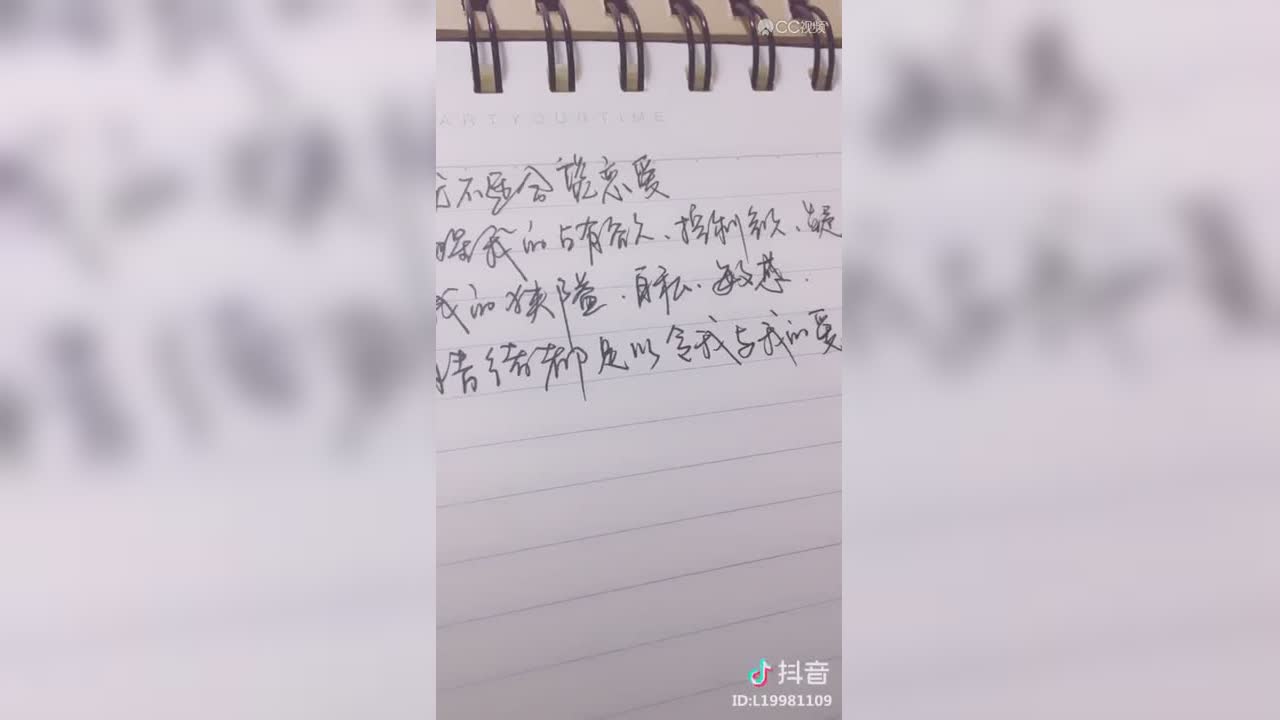 CC视频
ARTYOURTIME
我不适合谈恋爱
我的占有欲、控制欲、疑
我的狭隘.自私.敏感.
情绪都足以令我与我的爱
抖音
ID:L19981109